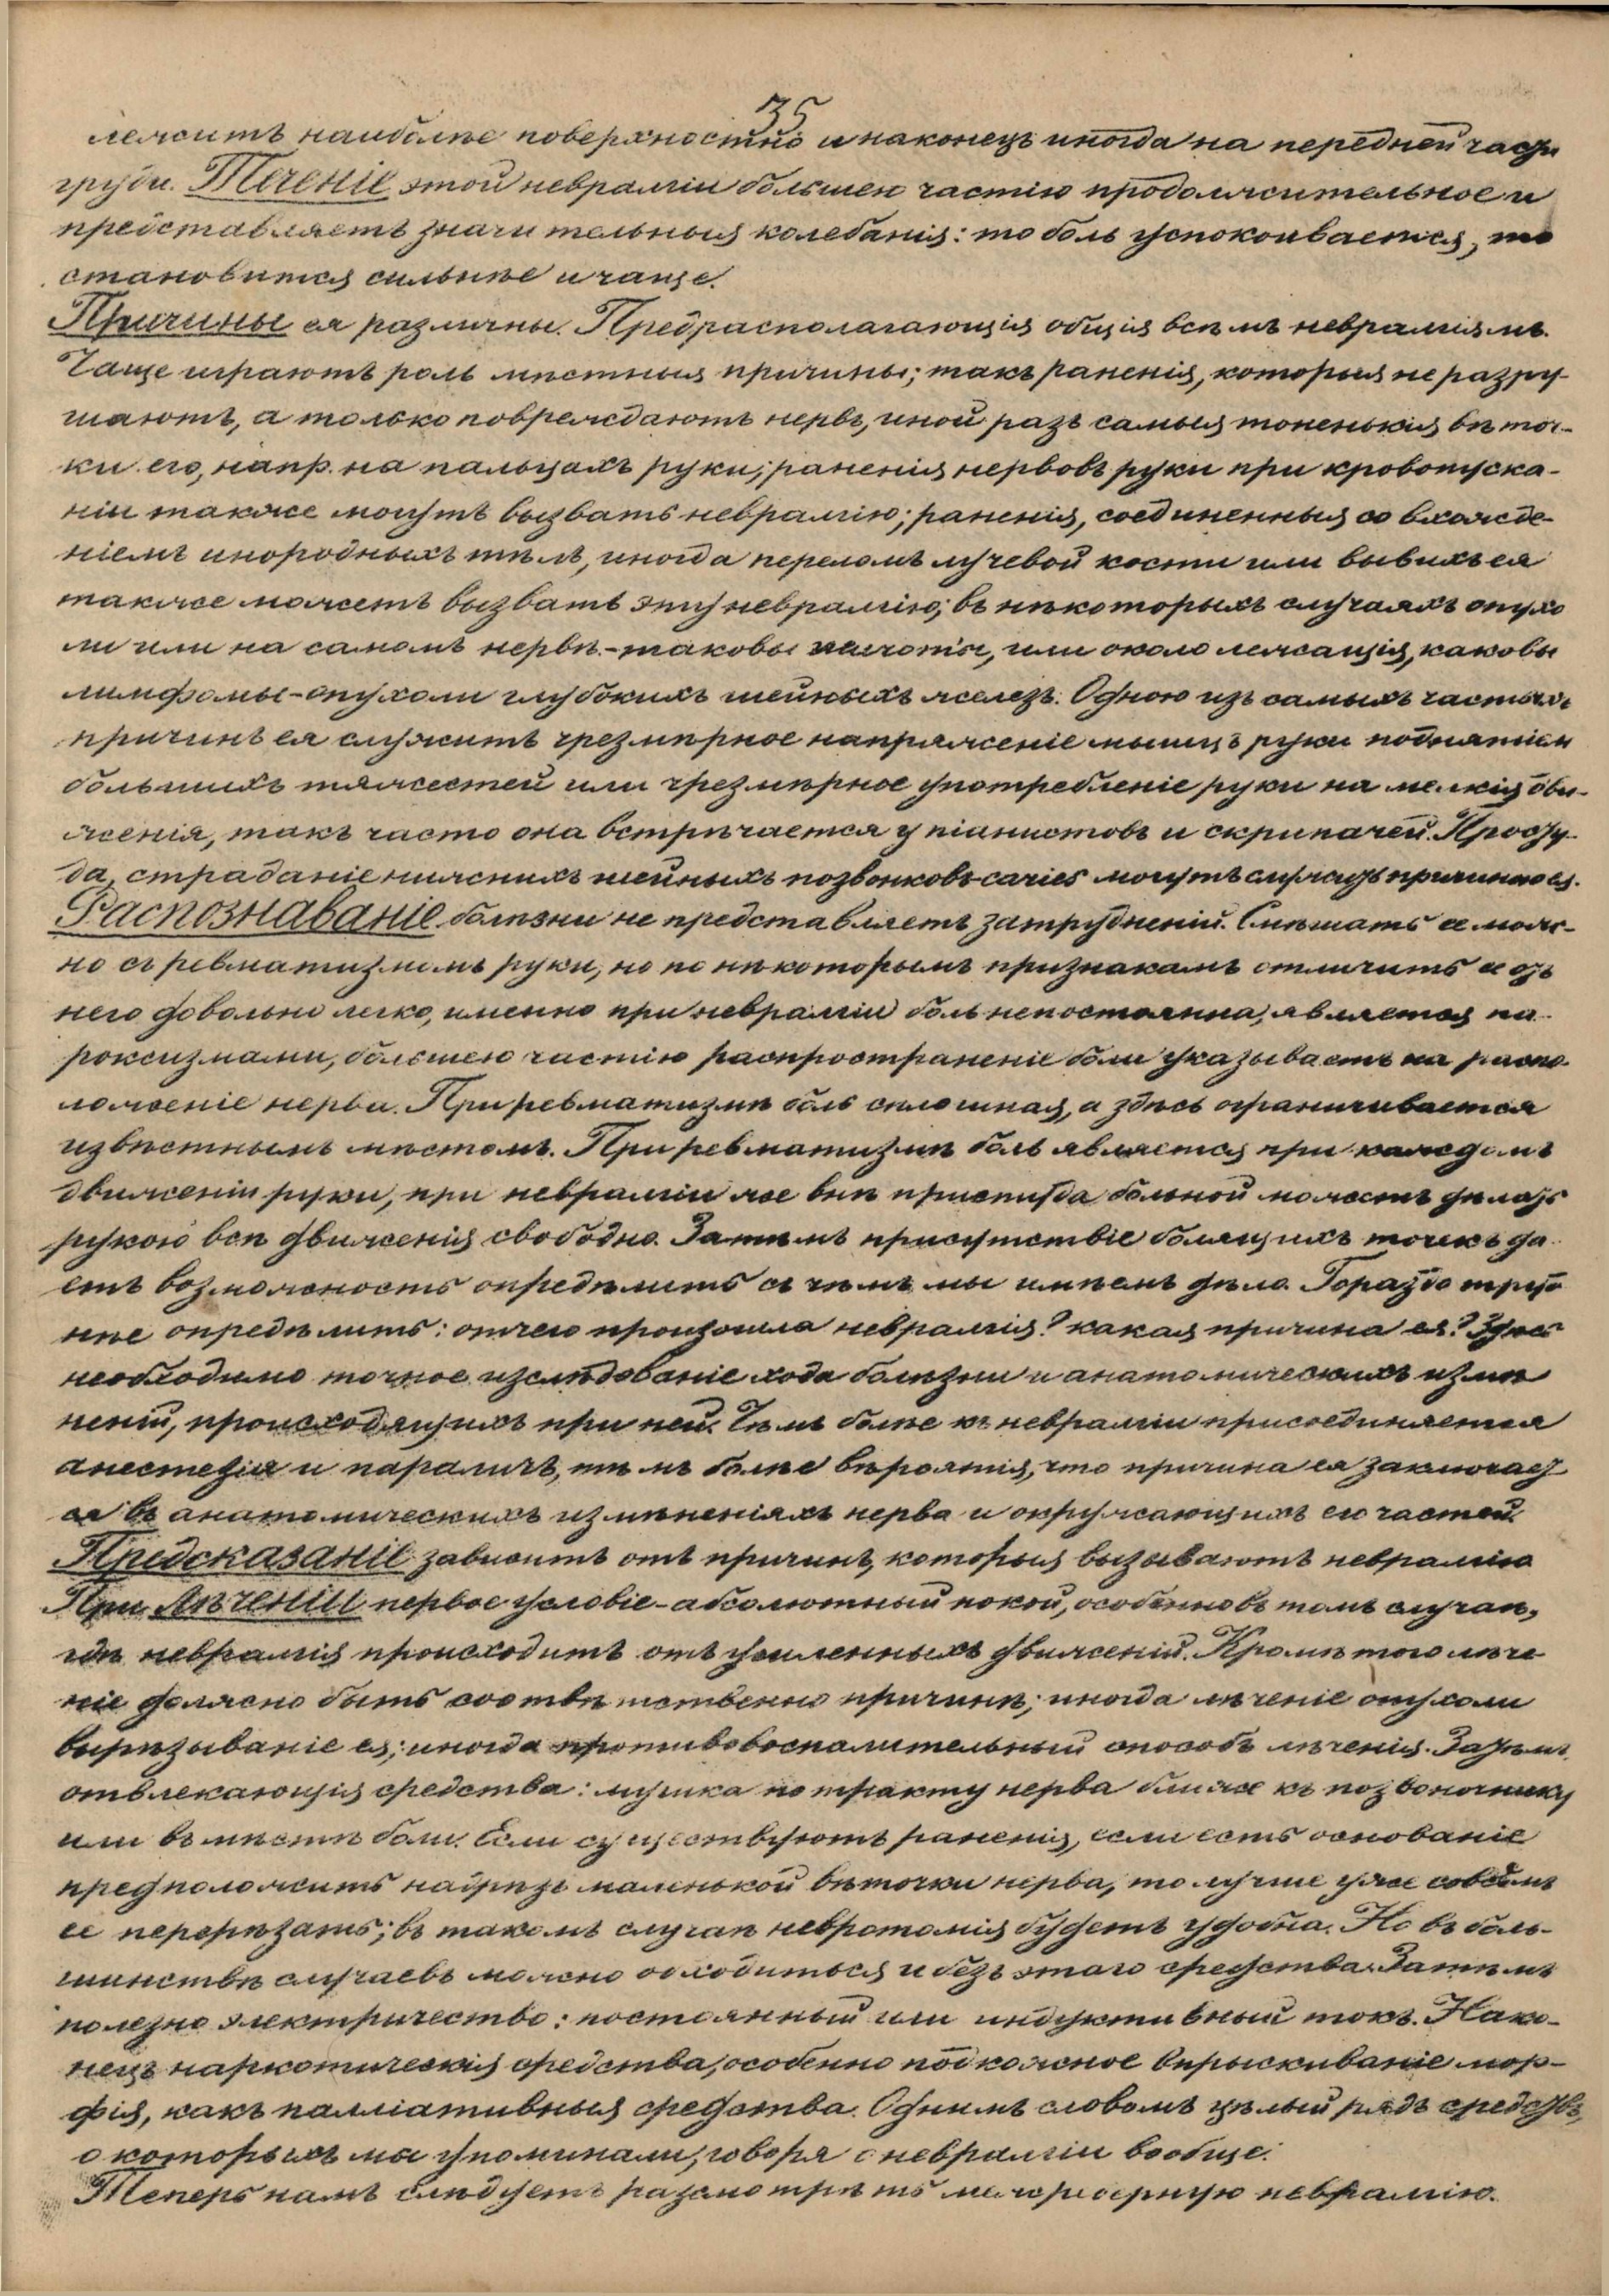 35
лежитъ наиболѣе поверхностно и наконецъ иногда на передней части
груди. Теченіе этой невралгіи большею частію продолжительное и
представляетъ значительныя колебанія: то боль успокоивается, то
становится сильнѣе и чаще.
Причины ея различны. Предрасполагающія общія всѣмъ невралгіямъ.
Чаще играютъ роль мѣстныя причины; такъ раненія, которыя не разру-
шаютъ, а только повреждаютъ нервъ, иной разъ самыя тоненькія вѣточ-
ки его, напр. на пальцахъ руки; раненія нервовъ руки при кровопуска-
ніи также могутъ вызвать невралгію; раненія, соединенныя со вхожде-
ніемъ инородныхъ тѣлъ, иногда переломъ лучевой кости или вывихъ ея
также можетъ вызвать эту невралгію; въ нѣкоторыхъ случаяхъ опухо
ли или на самомъ нервѣ - таковы, или около лежащія, каковы
лимфомы - опухоли глубокихъ шейныхъ железъ. Одною изъ самыхъ частыхъ
причинъ ея служитъ чрезмѣрное напряженіе мышцъ руки поднятіем
большихъ тяжестей или чрезмѣрное употребленіе руки на мелкія дви-
женія, такъ часто она встрѣчается у піанистовъ и скрипачей. Просту-
да, страданіе нижнихъ шейныхъ позвонковъ - caries могутъ служить причиною ея.
Распознаваніе болѣзни не представляетъ затрудненій. Смѣшать ее мож-
но съ ревматизмомъ руки, но по нѣкоторымъ признакамъ отличить ее отъ
него довольно легко, именно при невралгіи боль непостоянна, является па-
роксизмами, большею частію распространеніе боли указываетъ на распо-
ложеніе нерва. При ревматизмѣ боль сплошная, а здѣсь ограничивается
извѣстнымъ мѣстомъ. При ревматизмѣ боль является при каждомъ
движеніи руки, при невралгіи же внѣ приступа больной можетъ дѣлать
рукою всѣ движенія свободно. Затѣмъ присутствіе болящихъ точекъ да-
етъ возможность опредѣлить съ чѣмъ мы имѣемъ дѣло. Гораздо труд
нѣе опредѣлить: отчего произошла невралгія? какая причина ея? Здѣсь
необходимо точное изслѣдованіе хода болѣзни и анатомическихъ измѣ
неній, происходящихъ при ней. Чѣмъ болѣе къ невралгіи присоединяется
анестезія и параличъ, тѣмъ болѣе вѣроятія, что причина ея заключает
ся въ анатомическихъ измѣненіяхъ нерва и окружающихъ его частей.
Предсказаніе зависитъ отъ причинъ, которыя вызываютъ невралгію
При Лѣченіи первое условіе - абсолютный покой, особенно въ томъ случаѣ,
гдѣ невралгія происходитъ отъ усиленныхъ движеній. Кромѣ того лѣче
ніе должно быть соотвѣтственно причинѣ; иногда лѣченіе опухоли
вырѣзываніе ея; иногда противовоспалительный способъ лѣченія. Затѣмъ
отвлекающія средства: мушка по тракту нерва ближе къ позвоночнику
или въ мѣстѣ боли. Если существуютъ раненія, если есть основаніе
предположить надрѣзъ маленькой вѣточки нерва, то лучше уже совсѣмъ
ее перерѣзать; въ такомъ случаѣ невротомія будетъ удобна. Но въ боль-
шинствѣ случаевъ можно обходиться и безъ этого средства. Затѣмъ
полезно электричество: постоянный или индуктивный токъ. Нако-
нецъ наркотическія средства, особенно подкожное впрыскиваніе мор-
фія, какъ палліативныя средства. Однимъ словомъ цѣлый рядъ средствъ,
о которыхъ мы упоминали, говоря о невралгіи вообще.
Теперь намъ слѣдуетъ разсмотрѣть межреберную невралгію.